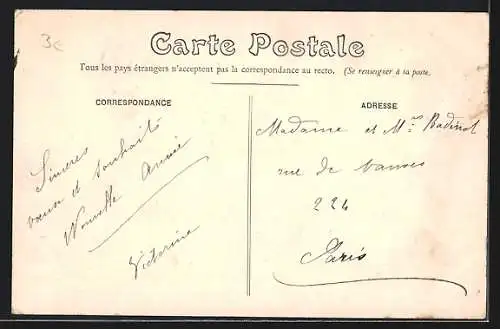 3€
Carte Postale
Tous les pays étrangers n'acceptent pas la correspondance au recto. (Se renseigner à la poste.
CORRESPONDANCE
Sincères
vœux et souhaits
Nouvelle Année
Victorine
ADRESSE
Madame et Mr Badinot
rue de Vanves
224
Paris